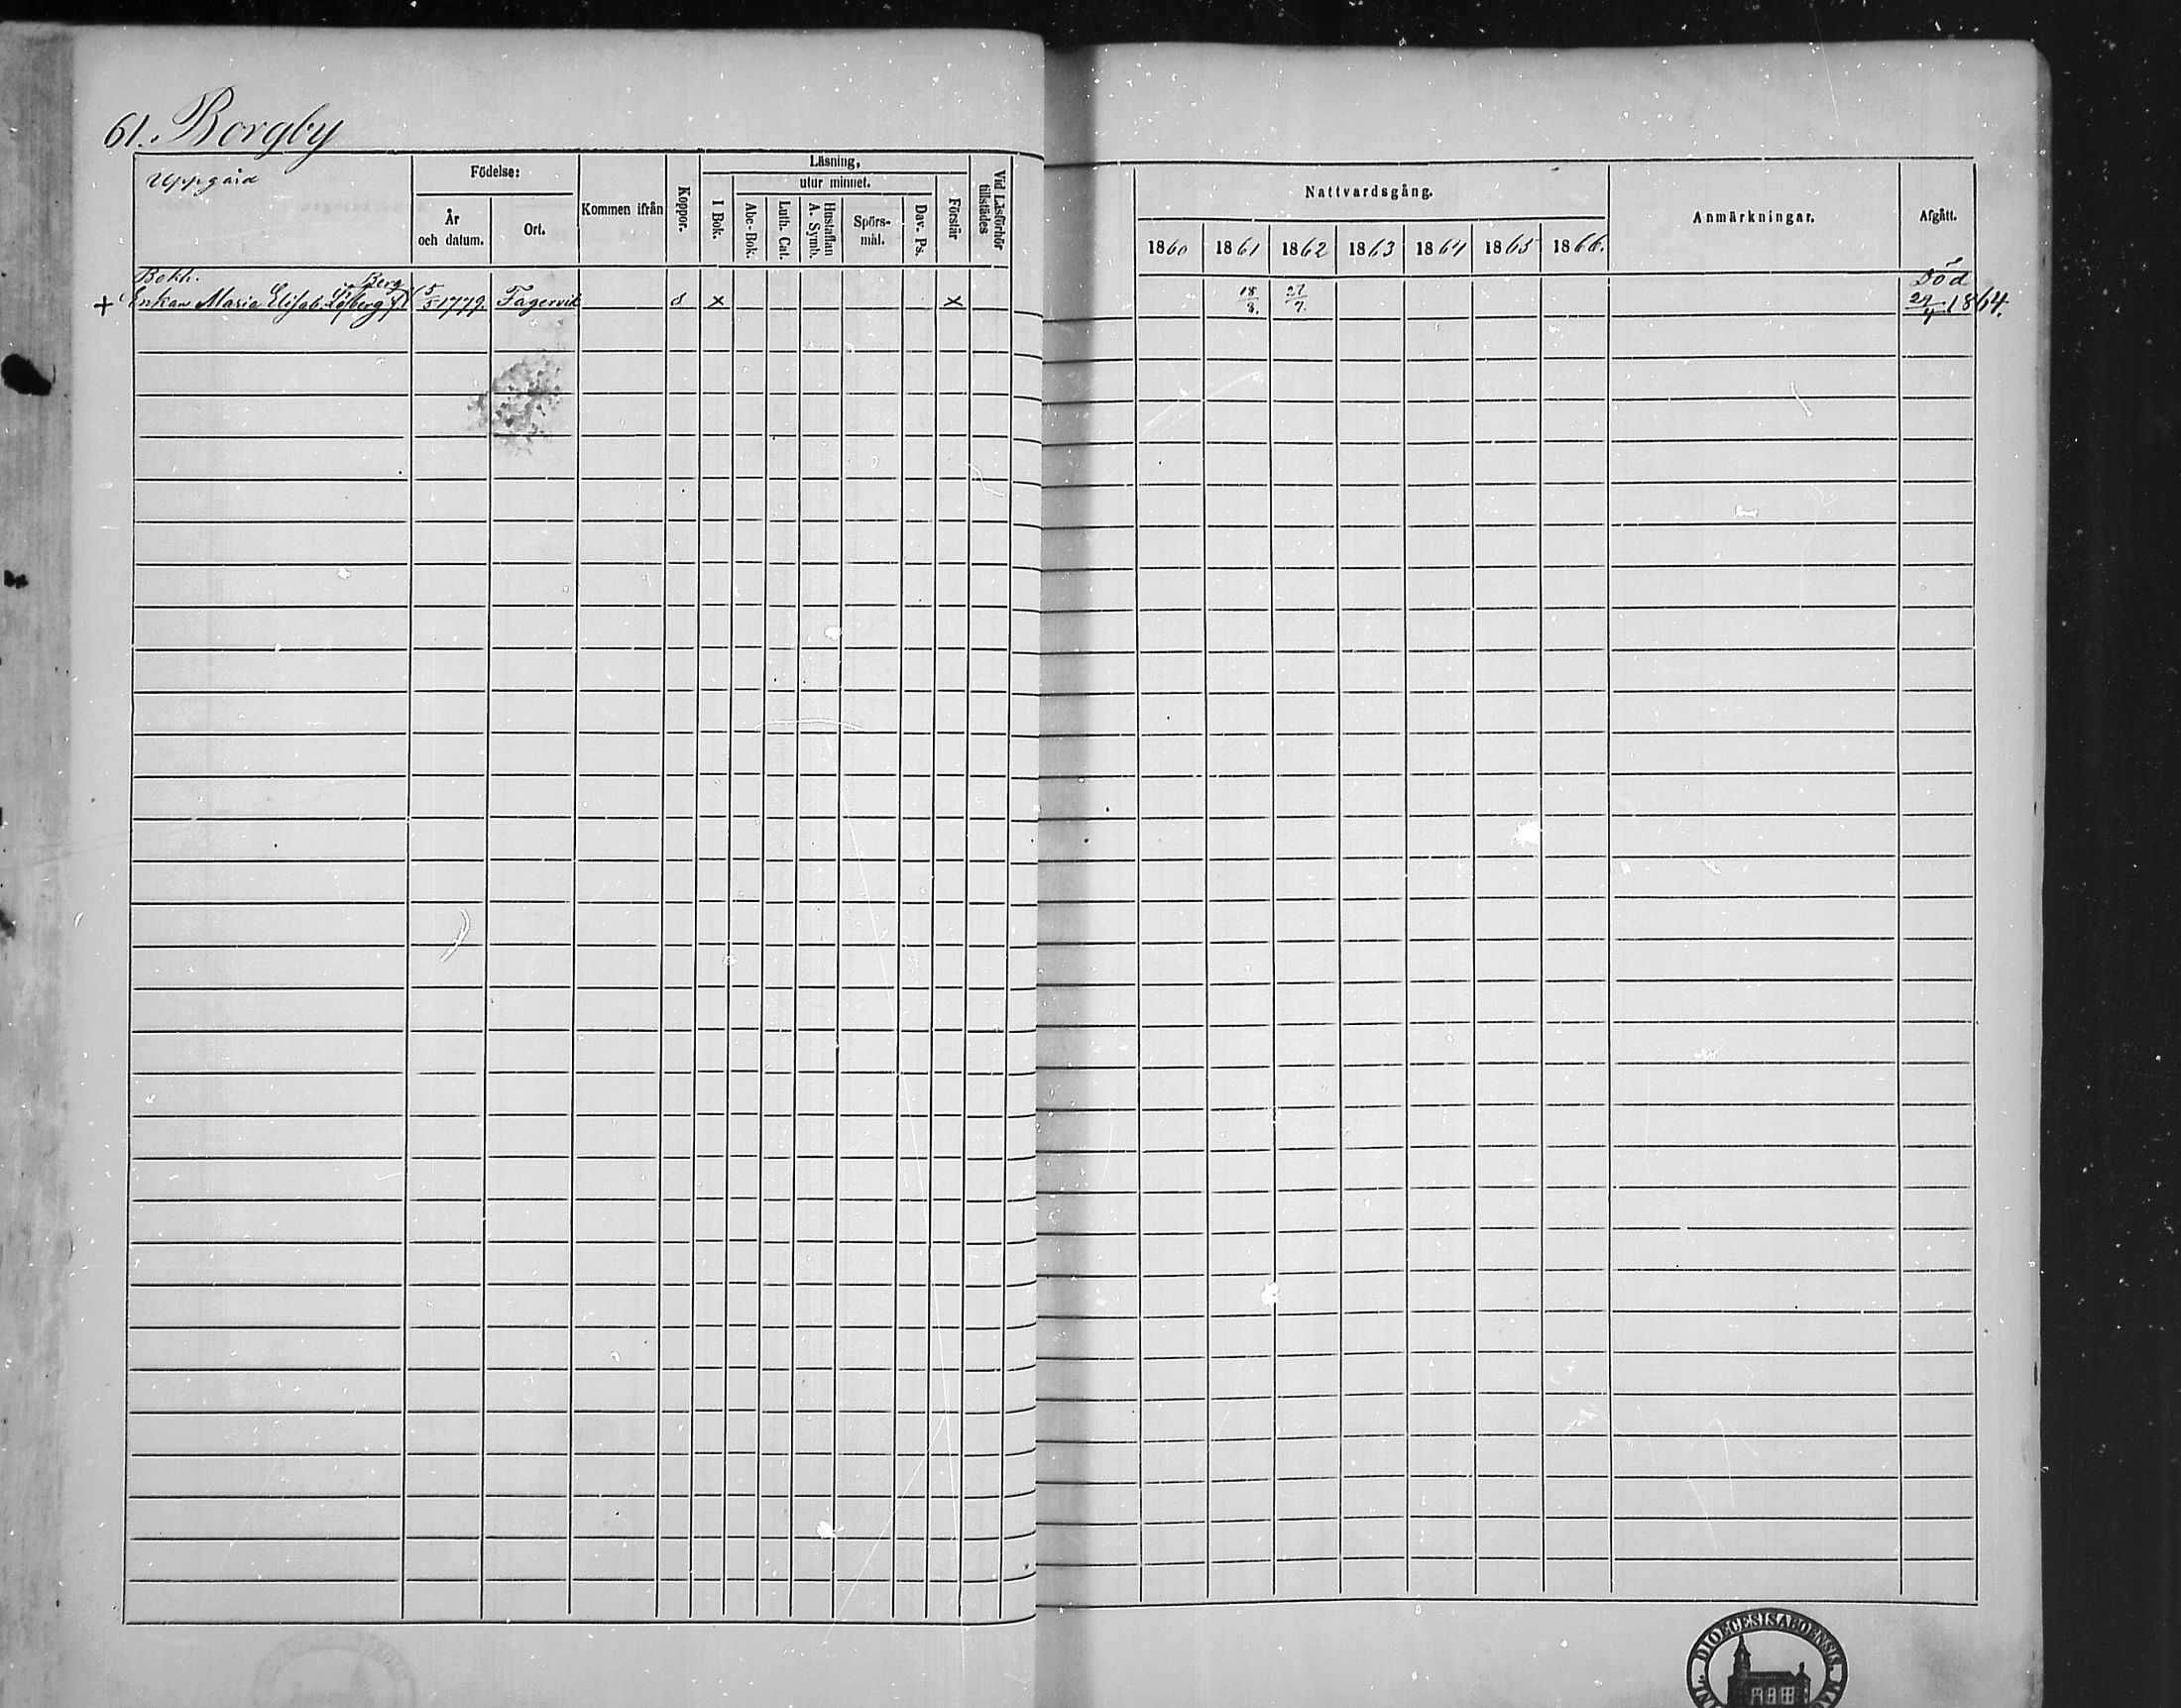 61. Borgby
Uppgård
Födelse:
År och datum.
Ort.
Kommen ifrån
Koppor.
Läsning,
I Bok.
utur minnet.
Abc-Bok.
Luth. Cat.
Hustaflan A. Symb.
Spörs-mål.
Dav. Ps.
Förstår
Vid Läsförhör tillstädes
Nattvardsgång.
1860 1861 1862 1863 1864 1865 1866.
Anmärkningar.
Afgått.
Bokh. Berg Död
+ Enkan Maria Elisab. Löfberg 5/5 1779. Fagervik x x 18/8. 27/7. 29/4 1864.
DIOECESIS ABOENSIS